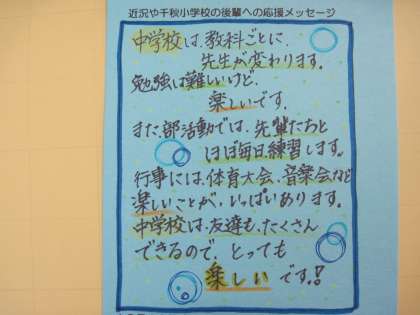 近況や千秋小学校の後輩への応援メッセージ
中学校は、教科ごとに、
先生が変わります。
勉強は難しいけど、
楽しいです。
また、部活動では、先輩たちと
ほぼ毎日練習します。
行事には、体育大会、音楽会など
楽しいことが、いっぱいあります。
中学校は、友達も、たくさん
できるので、とっても
楽しいです!!